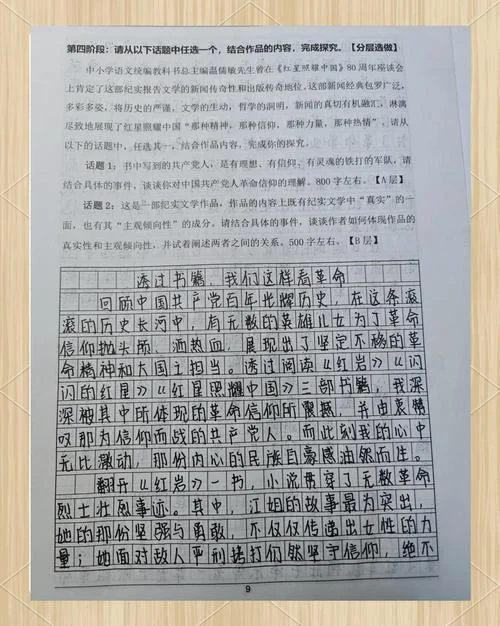 第四阶段：请从以下话题中任选一个，结合作品的内容，完成探究。【分层选做】
中小学语文统编教科书总主编温儒敏先生曾在《红星照耀中国》80周年座谈会
上肯定了这部纪实报告文学的新闻传奇性和出版传奇地位。这部新闻经典包罗广泛，
多彩多姿，将历史的严谨，文学的生动，哲学的洞明，新闻的真切有机融汇，淋漓
尽致地展现了红星照耀中国“那种精神，那种信仰，那种力量，那种热情”，请从
以下的话题中，任选其一，结合作品内容，完成你的探究。
话题1：书中写到的共产党人，是有理想、有信仰、有灵魂的铁打的军队，请
结合具体的事件，谈谈你对中国共产党人革命信仰的理解。800字左右。【A层】
话题2：这是一部纪实文学作品，作品的内容上既有纪实文学中“真实”的一
面，也有其“主观倾向性”的成分。请结合具体的事件，谈谈作者如何体现作品的
真实性和主观倾向性，并试着阐述两者之间的关系。500字左右。【B层】
透过书籍，我们这样看革命
回顾中国共产党百年光辉历史，在这条滚
滚的历史长河中，有无数的英雄儿女为了革命
信仰抛头颅、洒热血，展现出了坚定不移的革
命精神和大国主担当。透过阅读《红岩》《闪
闪的红星》《红星照耀中国》三部书籍，我深
深被其中所体现的革命信仰所震撼，并由衷赞
叹那为信仰而战的共产党人。而此刻我的心中
无比激动，那份内心的民族自豪感油然而生。
翻开《红岩》一书，小说贯穿了无数革命
烈士壮烈事迹。其中，江姐的故事最为突出，
她的那份坚强与勇敢，不仅仅传递出女性的力
量；她面对敌人严刑拷打们然坚守信仰，绝不
9